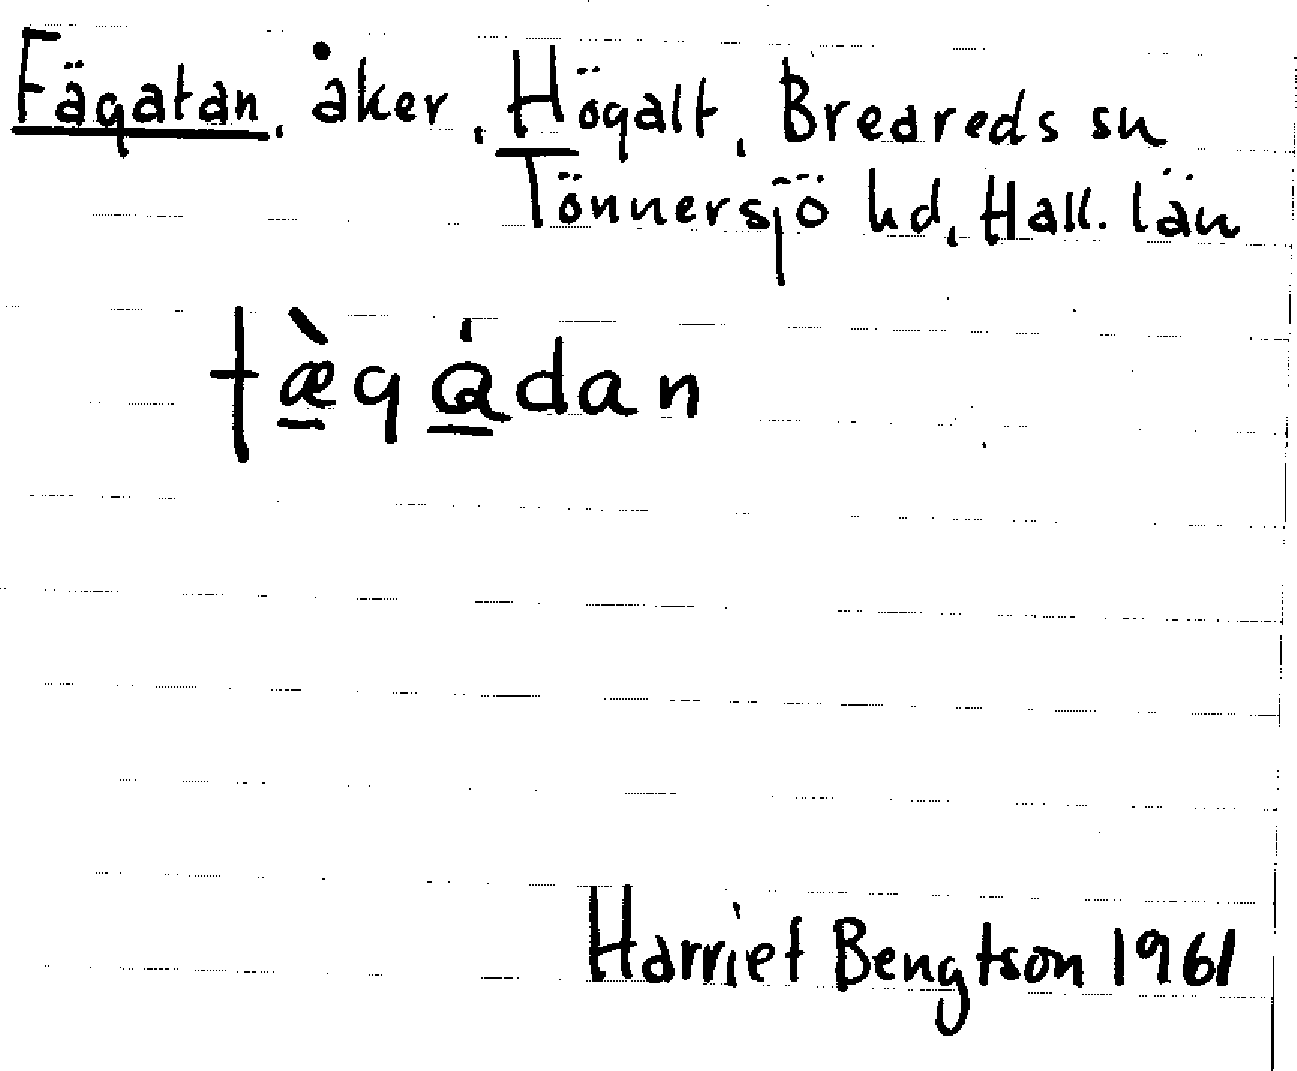 Fägatan, åker, Högalt, Breareds sn
Tönnersjö hd, Hall. län
fæ̠̀gɑ̠́dan
Harriet Bengtson 1961